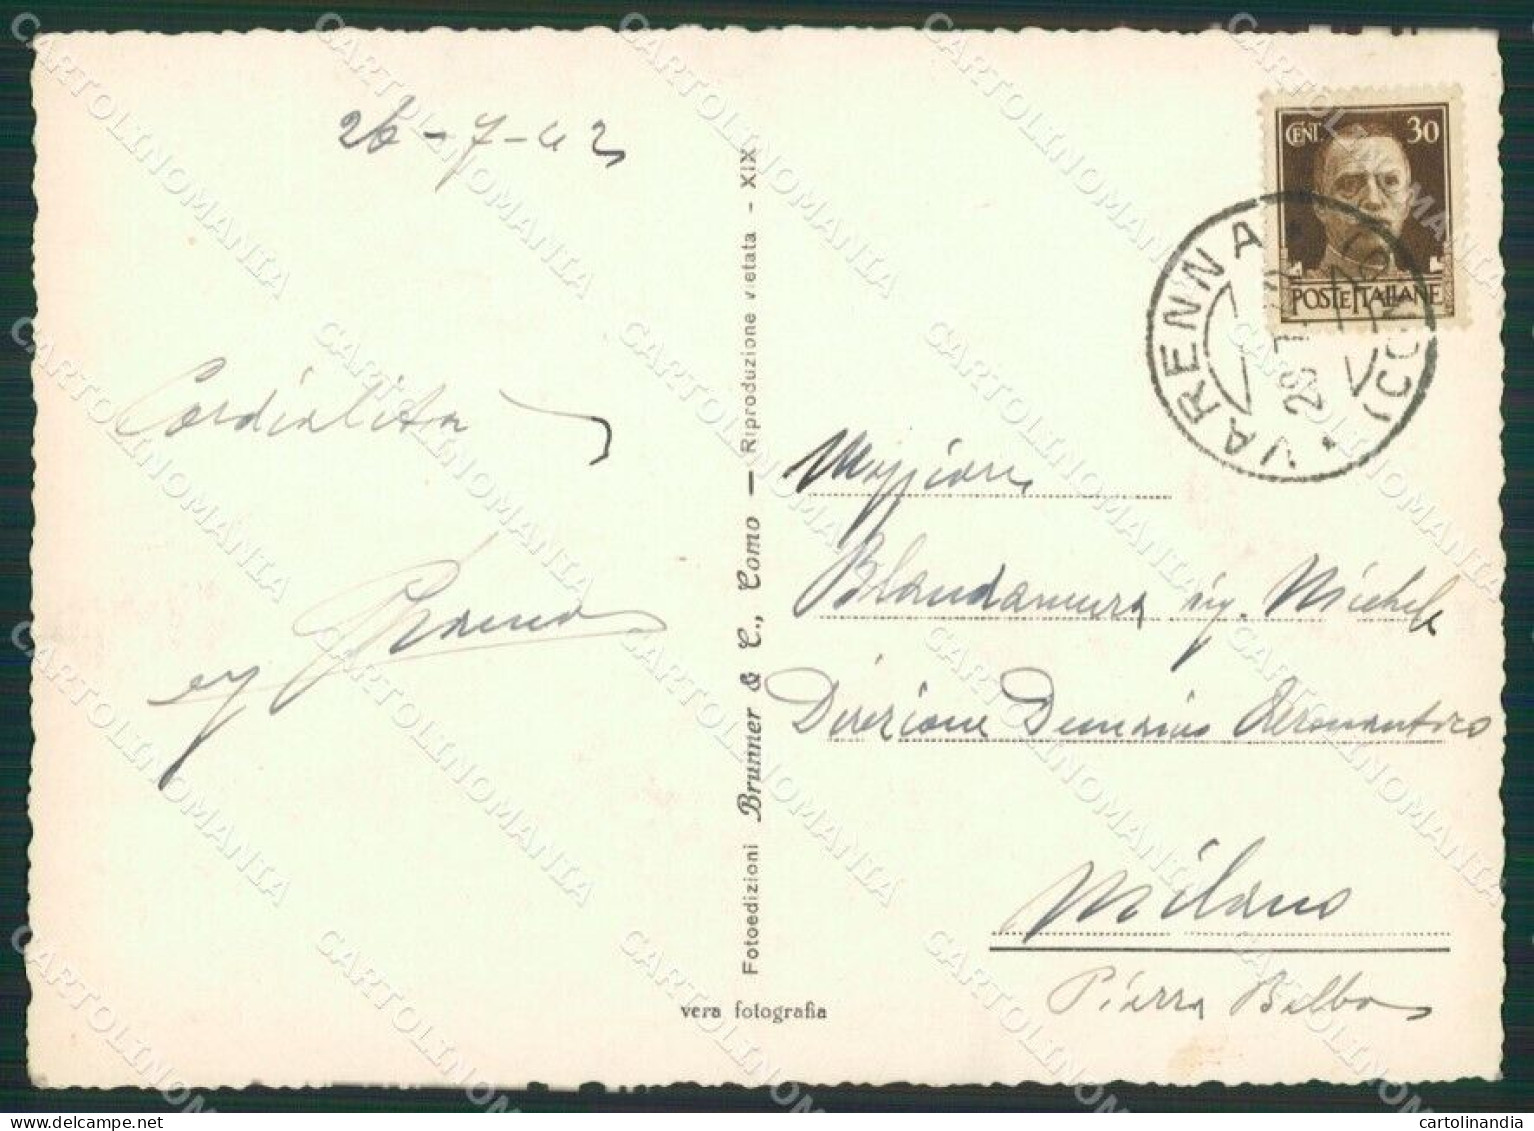 26-7-42
CENT 30
POSTE ITALIANE
VARENNA
28.7
(COMO)
Cordialità
Maggiore
Blandamura ing. Michele
Direzione Demanio Aeronautico
Milano
Piazza Balbo
Fotoedizioni Brunner & C., Como — Riproduzione vietata - XIX
vera fotografia
CARTOLINOMANIA
cartolinandia